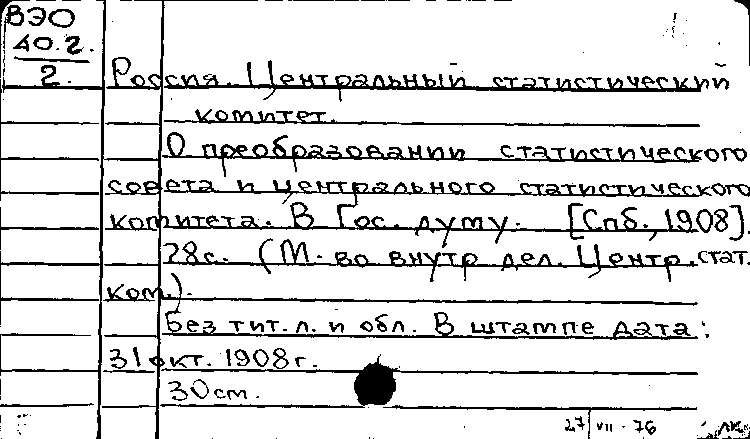 ВЭО
40.2.
2.
Россия. Центральный статистический
комитет.
О преобразовании статистического
совета и центрального статистического
комитета. В Гос. думу. [Спб., 1908].
28с. (М-во внутр дел. Центр. стат.
ком.).
Без тит. л. и обл. В штампе дата:
31 окт. 1908 г.
30 см.
27/VII-76